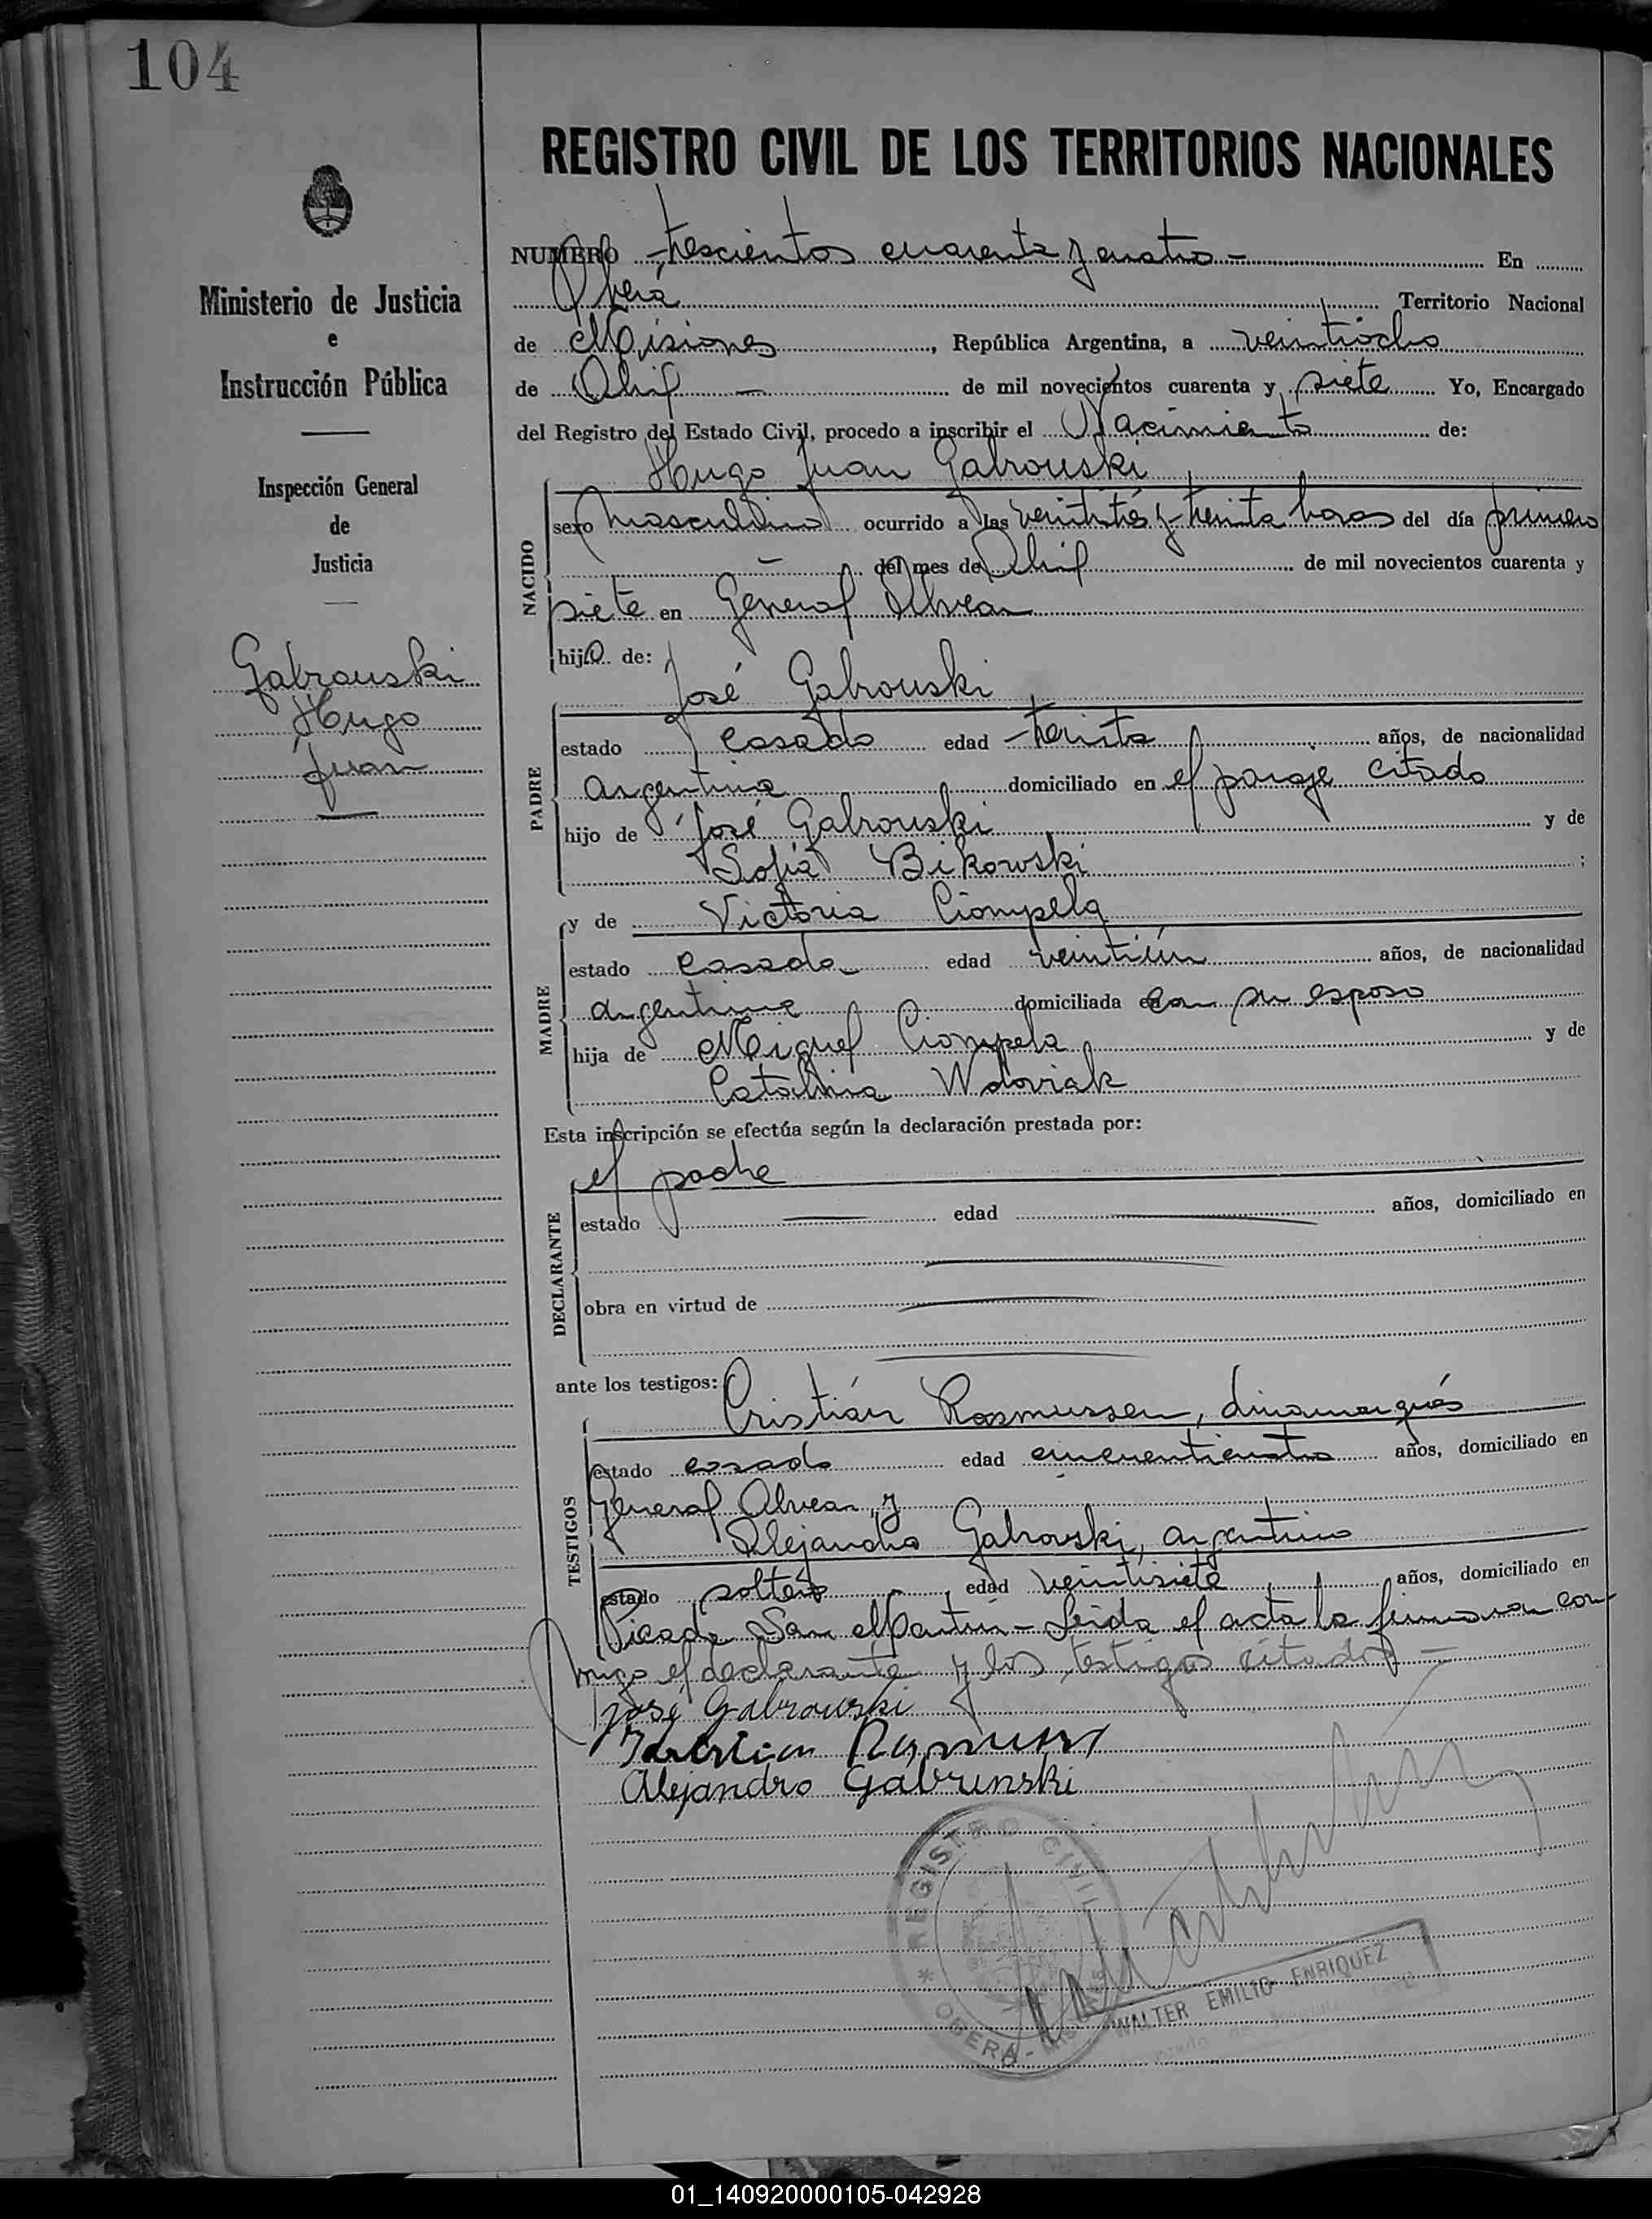 104
REGISTRO CIVIL DE LOS TERRITORIOS NACIONALES
Ministerio de Justicia
e
Instrucción Pública
Inspección General
de
Justicia
Gabrouski
Hugo
Juan
NUMERO trescientos cuarenta y cuatro - En
Oberá Territorio Nacional
de Misiones, República Argentina, a veintiocho
de Abril - de mil novecientos cuarenta y siete Yo, Encargado
del Registro del Estado Civil, procedo a inscribir el Nacimiento de:
Hugo Juan Gabrouski
NACIDO
sexo masculino ocurrido a las veintitrés y treinta horas del día primero
- del mes de Abril de mil novecientos cuarenta y
siete en General Alvear
hijo de:
José Gabrouski
PADRE
estado casado edad treinta años, de nacionalidad
argentina domiciliado en el paraje citado
hijo de José Gabrouski y de
Sofía Bikowski ;
y de Victoria Ciompela
MADRE
estado casada edad veintiún años, de nacionalidad
argentina domiciliada con su esposo
hija de Miguel Ciompela y de
Catalina Wdoviak
Esta inscripción se efectúa según la declaración prestada por:
el padre
DECLARANTE
estado edad años, domiciliado en
obra en virtud de
ante los testigos: Cristián Rasmussen, dinamarqués
TESTIGOS
estado casado edad cincuenticuatro años, domiciliado en
General Alvear, y
Alejandro Gabrouski, argentino
estado soltero edad veintisiete años, domiciliado en
Picada San Martín - Leída el acta la firmaron con
migo el declarante y los testigos citados -
José Gabrouski
Alejandro Gabrunski
REGISTRO CIVIL
OBERA - MISIONES
WALTER EMILIO ENRIQUEZ
01_140920000105-042928